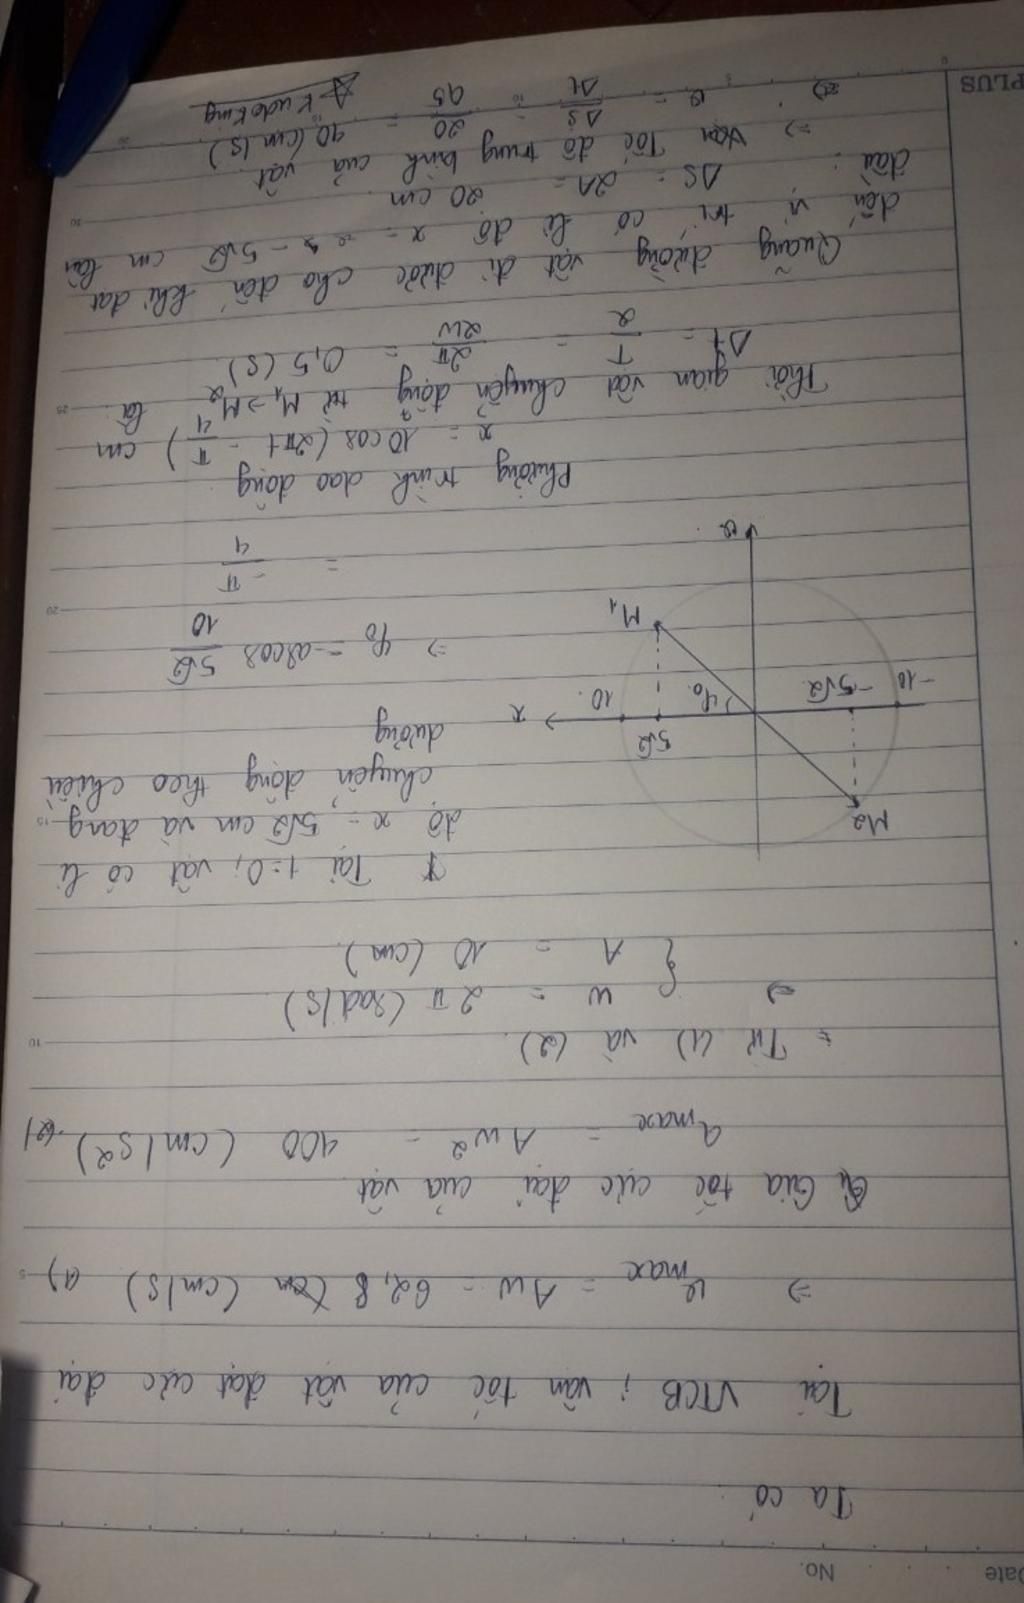 Date No.
Ta có
Tại VTCB ; vận tốc của vật đạt cực đại
⇒ v max = Aw = 62,8 (cm/s) (1)
Gia tốc cực đại của vật
a max = Aw2 = 400 (cm/s2) (2)
= Từ (1) và (2).
⇒ { w = 2π (rad/s)
A = 10 (cm)
Tại t=0; vật có li
độ x = 5√2 cm và đang
chuyển động theo chiều
dương
M2
-10 -5√2 φ0 5√2 10 x
M1
v
⇒ φ0 = -arcos 5√2/10
= -π/4
Phương trình dao động
x = 10cos(2πt - π/4) cm
Thời gian vật chuyển động từ M1→M2 là
Δt = T/2 = 2π/2w = 0,5 (s).
Quãng đường vật đi được cho đến khi đạt
đến vị trí có li độ x = -5√2 cm lần
đầu :
ΔS = 2A = 20 cm.
⇒ Tốc độ trung bình của vật.
⇒ v = ΔS/Δt = 20/0,5 = 40 (cm/s)
Kudoking
PLUS
5
10
15
20
25
30